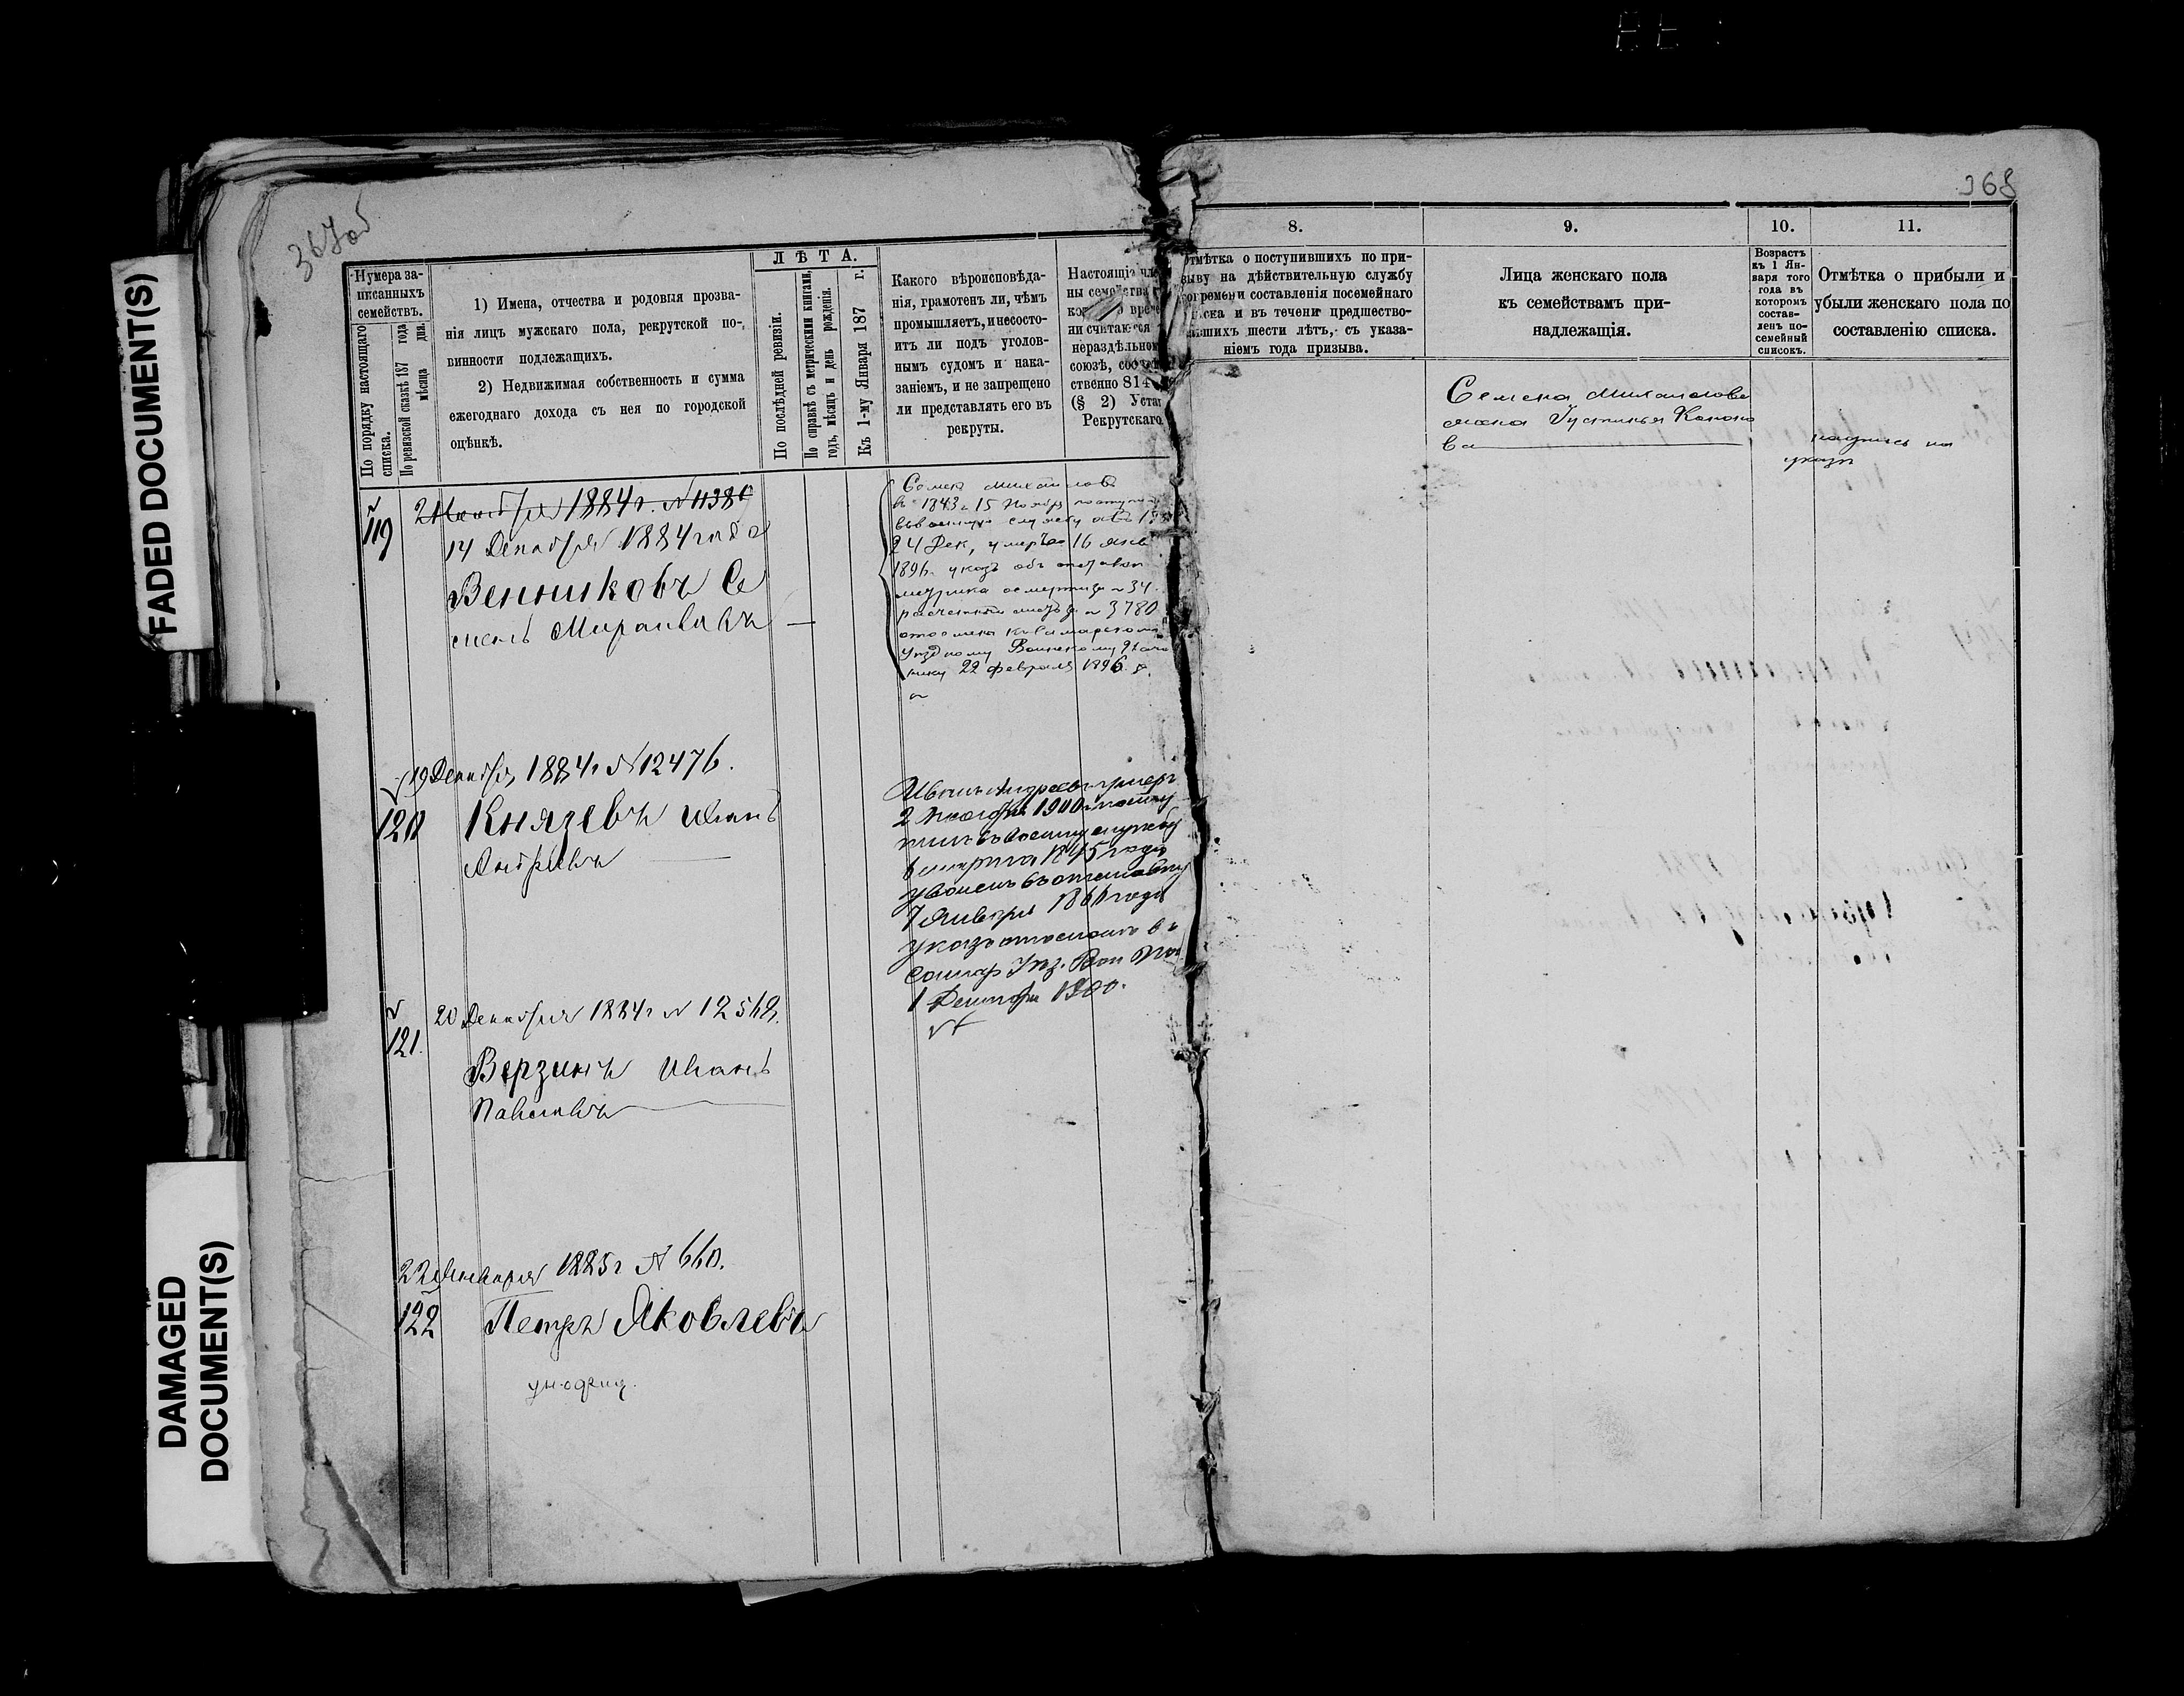 FADED DOCUMENT(S)
DAMAGED
DOCUMENT(S)
367об
Нумера за-
писанныхъ
семействъ.
По порядку настоящаго
списка.
По ревизской сказкѣ 187 года
мѣсяца дня.
1) Имена, отчества и родовыя прозва-
нія лицъ мужскаго пола, рекрутской по-
винности подлежащихъ.
2) Недвижимая собственность и сумма
ежегоднаго дохода съ нея по городской
оцѣнкѣ.
ЛѢТА.
По послѣдней ревизіи.
По справкѣ съ метрическими книгами,
годъ, мѣсяцъ и день рожденія.
Къ 1-му Января 187 г.
Какого вѣроисповѣда-
нія, грамотенъ ли, чѣмъ
промышляетъ, и несосто-
итъ ли подъ уголов-
нымъ судомъ и нака-
заніемъ, и не запрещено
ли представлять его въ
рекруты.
Настоящіе
ны семейства
ни считаются
нераздѣльном
союзѣ,
ственно 814
(§ 2) Уста
Рекрутскаго
119
1884г. №
14 Декабря 1884 года
Венниковъ Се
менъ
Семенъ Михаиловъ
въ 1843 г 15 Ноября поступи
въ военную службу
24 Дек, умеръ 16 янв
1896 указъ объ отставк
метрика о смерти за № 34
расчетный листъ за № 3780
уѣздному Воинскому Нача
нику 22 февраля 1896 г.
19 Декабря 1884г № 12476.
120
Князевъ Иванъ
Андреевъ
Иванъ Андреевъ умеръ
2 Ноября 1900 г посту
пилъ въ военную службу
марта 1845 года
уволенъ въ отставку
7 Января 186 года
указъ отосланъ въ
Самар Уѣз. Воин Нач
1 Декабря 1900.
121.
20 Декабря 1884г №
Верзинъ Иванъ
Павловъ
22 Января 1885г № 660.
122
Петръ Яковлевъ
ун-офиц.
368
8.
9.
10.
11.
Отмѣтка о поступившихъ по при-
зыву на дѣйствительную службу
со времени составленія посемейнаго
списка и въ теченіи предшество-
вавшихъ шести лѣтъ, съ указа-
ніемъ года призыва.
Лица женскаго пола
къ семействамъ при-
надлежащія.
Возрастъ
къ 1 Ян-
варя того
года въ
которомъ
состав-
ленъ по-
семейный
списокъ.
Отмѣтка о прибыли и
убыли женскаго пола по
составленію списка.
Семена Михаилова
жена Устинья Конано
ва
надпись на
указѣ